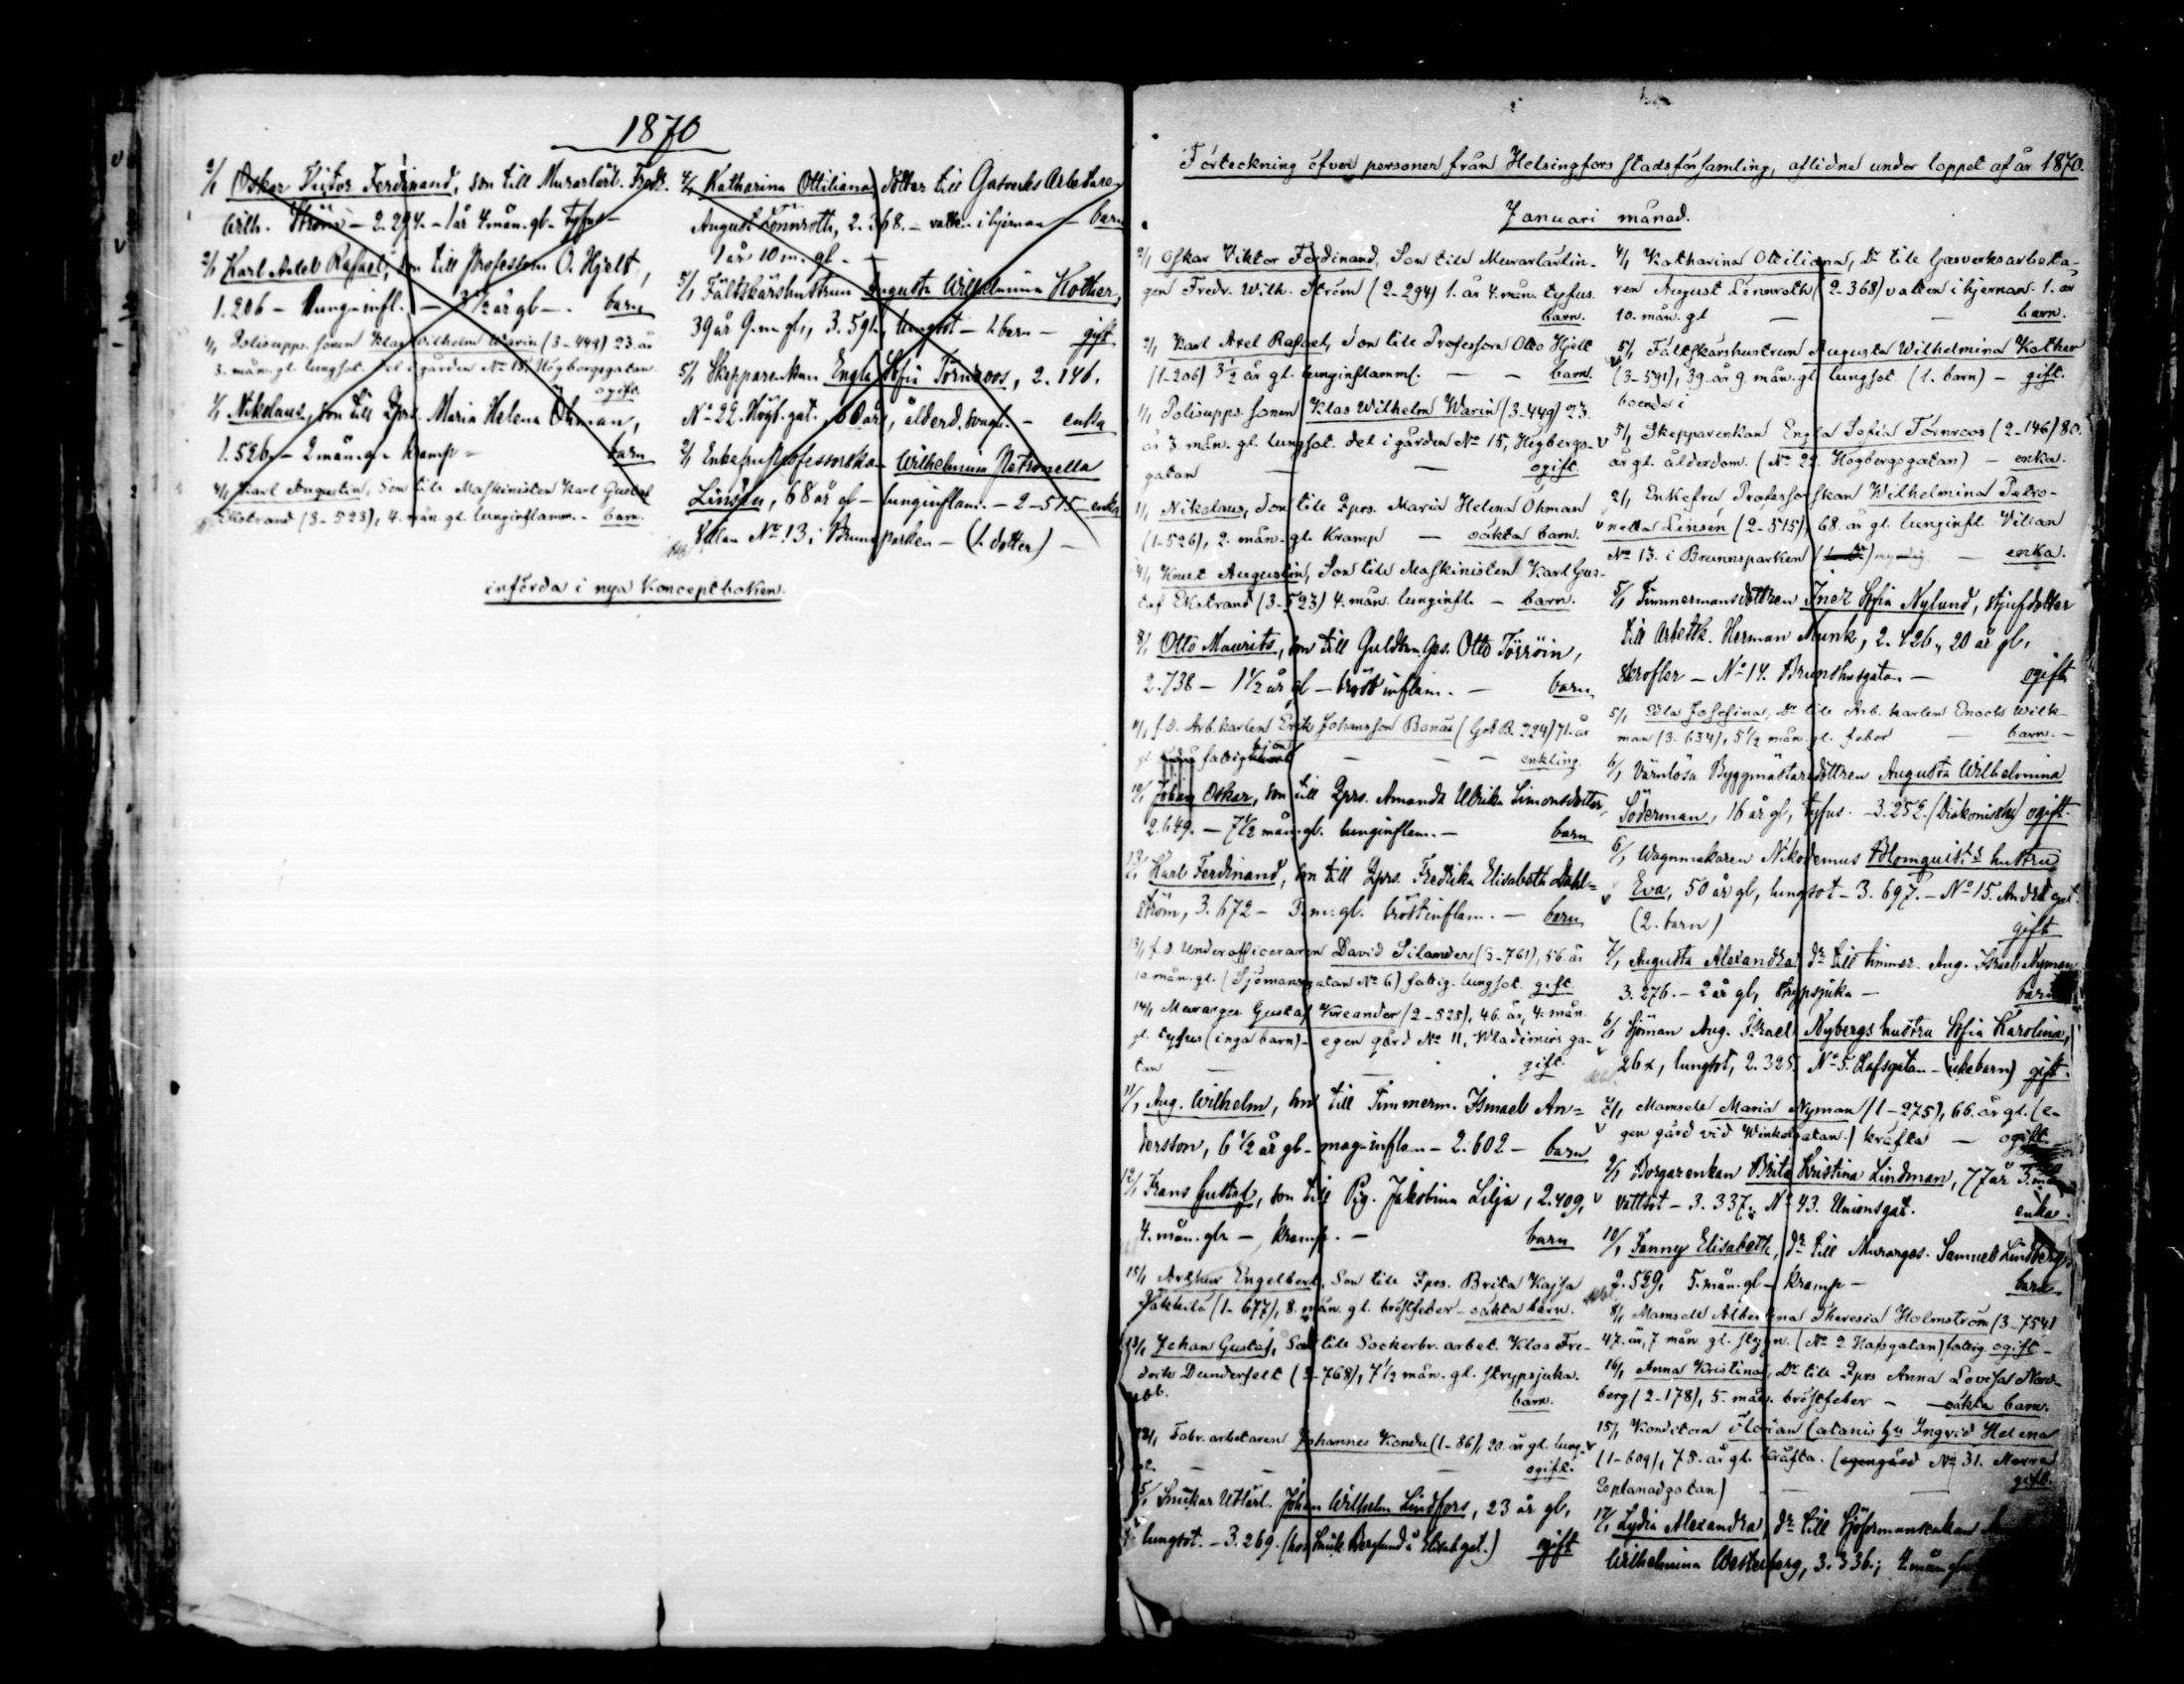 1870
2/1 Oskar Victor Ferdinand, son till Murarlärl. Fredr.
Wilh. Ström - 2. 294. - 1 år 4 mån. gl. Tyfus -
2/1 Karl Axel Rafael, son till Professorn O. Hjelt,
1. 206 - Lunginfl. - 3 1/2 år gl - barn
1/1 Polisupps. sonen Klas Wilhelm Warin (3-449) 23. år
3. mån. gl. lungsot. del i gården No 15, Högbergsgatan.
ogift.
1/1 Nikolaus, son till Qprs. Maria Helena Öhman,
1. 526. - 2 mån. gl. kramp - barn
4/1 Karl Augustin, Son till Maskinisten Karl Gustaf
Ekstrand (3-523), 4. mån gl. lunginflamm. - barn.
4/1 Katharina Ottiliana, dotter till Gasverks Arbetare
August Lönnroth, 2. 368. - vatten i hjernan - barn
1 år 10 m. gl. -
5/1 Fältskärshustrun Augusta Wilhelmina Kother,
39 år 9. m gl., 3. 591. lungsot - 1. barn - gift
5/1 Skepparenkan Engla Sofia Törnroos, 2. 146.
No 22. Högb. gat. 80 år, ålderd. svagh. - enka
2/1 Enkefru Professorskan Wilhelmina Petronella
Linsén, 68 år gl - lunginflam. - 2-515 - enka
Villan No 13. i Brunsparken - (1. dotter) -
införda i nya Konceptboken.
Förteckning öfver personer från Helsingfors stadsförsamling, aflidne under loppet af år 1870.
Januari månad.
2/1 Oskar Viktor Ferdinand, Son till Murarlärlin-
gen Fredr. Wilh. Ström (2-294) 1. år 4. mån. tyfus.
barn.
2/1 Karl Axel Rafael, Son till Professorn Otto Hjelt
(1-206) 3 1/2 år gl. lunginflamm. - - barn.
1/1 Polisupps. sonen Klas Wilhelm Warin (3-449) 23.
år 3. mån. gl. lungsot. del i gården No 15, Högbergs-
gatan - - ogift
1/1 Nikolaus, Son till Qprs. Maria Helena Öhman
(1-526), 2. mån. gl. Kramp - oäkta barn.
4/1 Knut Augustin, Son till Maskinisten Karl Gus-
taf Ekstrand (3-523) 4. mån. lunginfl. - barn.
8/1 Otto Maurits, son till Guldsm. Ges. Otto Törröin,
2. 738 - 1 1/2 år gl - bröst inflam. - barn
f. d. Arb. karlen Erik Johansson Bonäs (God B. 224) 71. år
gl. fattighjon - - enkling.
10/1 Johan Oskar, son till Qprs. Amanda Ulrika Simonsdotter,
2. 649. - 7 1/2 mån. gl. lunginflam. - barn
13/1 Karl Ferdinand, son till Qprs. Fredrika Elisabeth Dahl=
ström, 3. 672 - 3. m. gl. bröstinflam. - barn
13/1 f. d. Underofficeraren David Silander (3-761), 56. år
10. mån. gl. (Sjömansgatan No 6) fattig. lungsot. gift
14/1 Murarges. Gustaf Kreander (2-525), 46. år, 4. mån.
gl. tyfus (inga barn) - egen gård No 11, Wladimirs ga-
tan - - gift.
11/1 Aug. Wilhelm, son till Timmerm. Ismael An=
dersson, 6 1/2 år gl - mag-inflam - 2. 602 - barn
12/1 Frans Gustaf, son till Pig. Jakobina Lilja, 2. 409,
4. mån. gl - kramp. - barn
15/1 Arthur Engelbert, Son till Qprs. Brita Kajsa
(1-677), 8. mån. gl. bröstfeber - oäkta barn.
13/1 Johan Gustaf, Son till Sockerbr. arbet. Klas Fre-
drik Dunderfelt (3-768), 7 1/2 mån. gl. strypsjuka.
barn.
Fabr. arbetaren Johannes Kondu (1-86), 20. år gl. lung-
ot. - - ogift.
5/1 Snickar Utlärl. Johan Wilhelm Lindfors, 23 år gl,
lungsot. - 3. 269. (hos Snick. Berglund å Elisab. gat.) ogift
4/1 Katharina Ottiliana, Dr till Gasverksarbeta-
ren August Lönnroth (2-368) vatten i hjernan. 1. år
10. mån. gl - - barn.
5/1 Fältskärshustrun Augusta Wilhelmina Kother
(3-591), 39. år 9. mån. gl. lungsot. (1. barn) - gift.
boende i
5/1 Skepparenkan Engla Sofia Törnroos (2-146) 80.
år gl. ålderdom. (No 22. Högbergsgatan) - enka.
2/1 Enkefru Professorskan Wilhelmina Petro-
nella Linsén (2-515), 68. år gl. lunginfl. Villan
No 13. i Brunnsparken - enka.
5/1 Timmermansdottren Inez Sofia Nylund, styfdotter
till Arbetsk. Herman Munk, 2. 426., 20 år gl,
Skrofler - No 14. Brunshusgatan - ogift
5/1 Edla Josefina, Dr till Arb. karlen Enoch Wilk-
man (3-634), 5 1/2 mån. gl. feber - barn. -
6/1 Värnlösa Byggmästarsdottren Augusta Wilhelmina
Söderman, 16 år gl, tyfus. - 3. 252. (Diakoniss) ogift.
6/1 Wagnmakaren Nikodemus Blomquists hustru
Eva, 50 år gl, lungsot - 3. 697. - No 15. Andrégat.
(2. barn) gift
7/1 Augusta Alexandra, dr till timmer. Aug. Israel Nyman
3. 276. - 2 år gl, Strypsjuka - barn
6/1 Sjöman Aug. Israel Nybergs hustru Sofia Karolina,
26 år, lungsot, 2. 325. No 5. Olafsgatan - (icke barn) gift.
7/1 Mamsell Maria Nyman (1-275), 66. år gl. (e-
gen gård vid Winkelgatan.) kräfta - ogift.
9/1 Borgarenkan Brita Kristina Lindman, 77 år 3. mån
Vattsot - 3. 337. No 43. Unionsgat. enka.
10/1 Fanny Elisabeth, dr till Murarges. Samuel Lindberg,
2. 529, 5. mån. gl - kramp - barn
8/1 Mamsell Albertina Theresia Holmström (3-754)
47. år, 7. mån. gl. slagn. (No 2 Hafsgatan) fattig. ogift -
16/1 Anna Kristina, Dr till Qprs Anna Lovisa Nord-
berg (2-178), 5. mån. bröstfeber - oäkta barn.
15/1 Konditorn Florian Catanis hu Ingrid Helena
(1-609), 75. år gl. kräfta. (egengård No 31. Norra
Esplanadgatan) - - gift.
17/1 Lydia Alexandra, dr till Sjöformansenkan
Wilhelmina Westerberg, 3. 336.; 4. mån gl